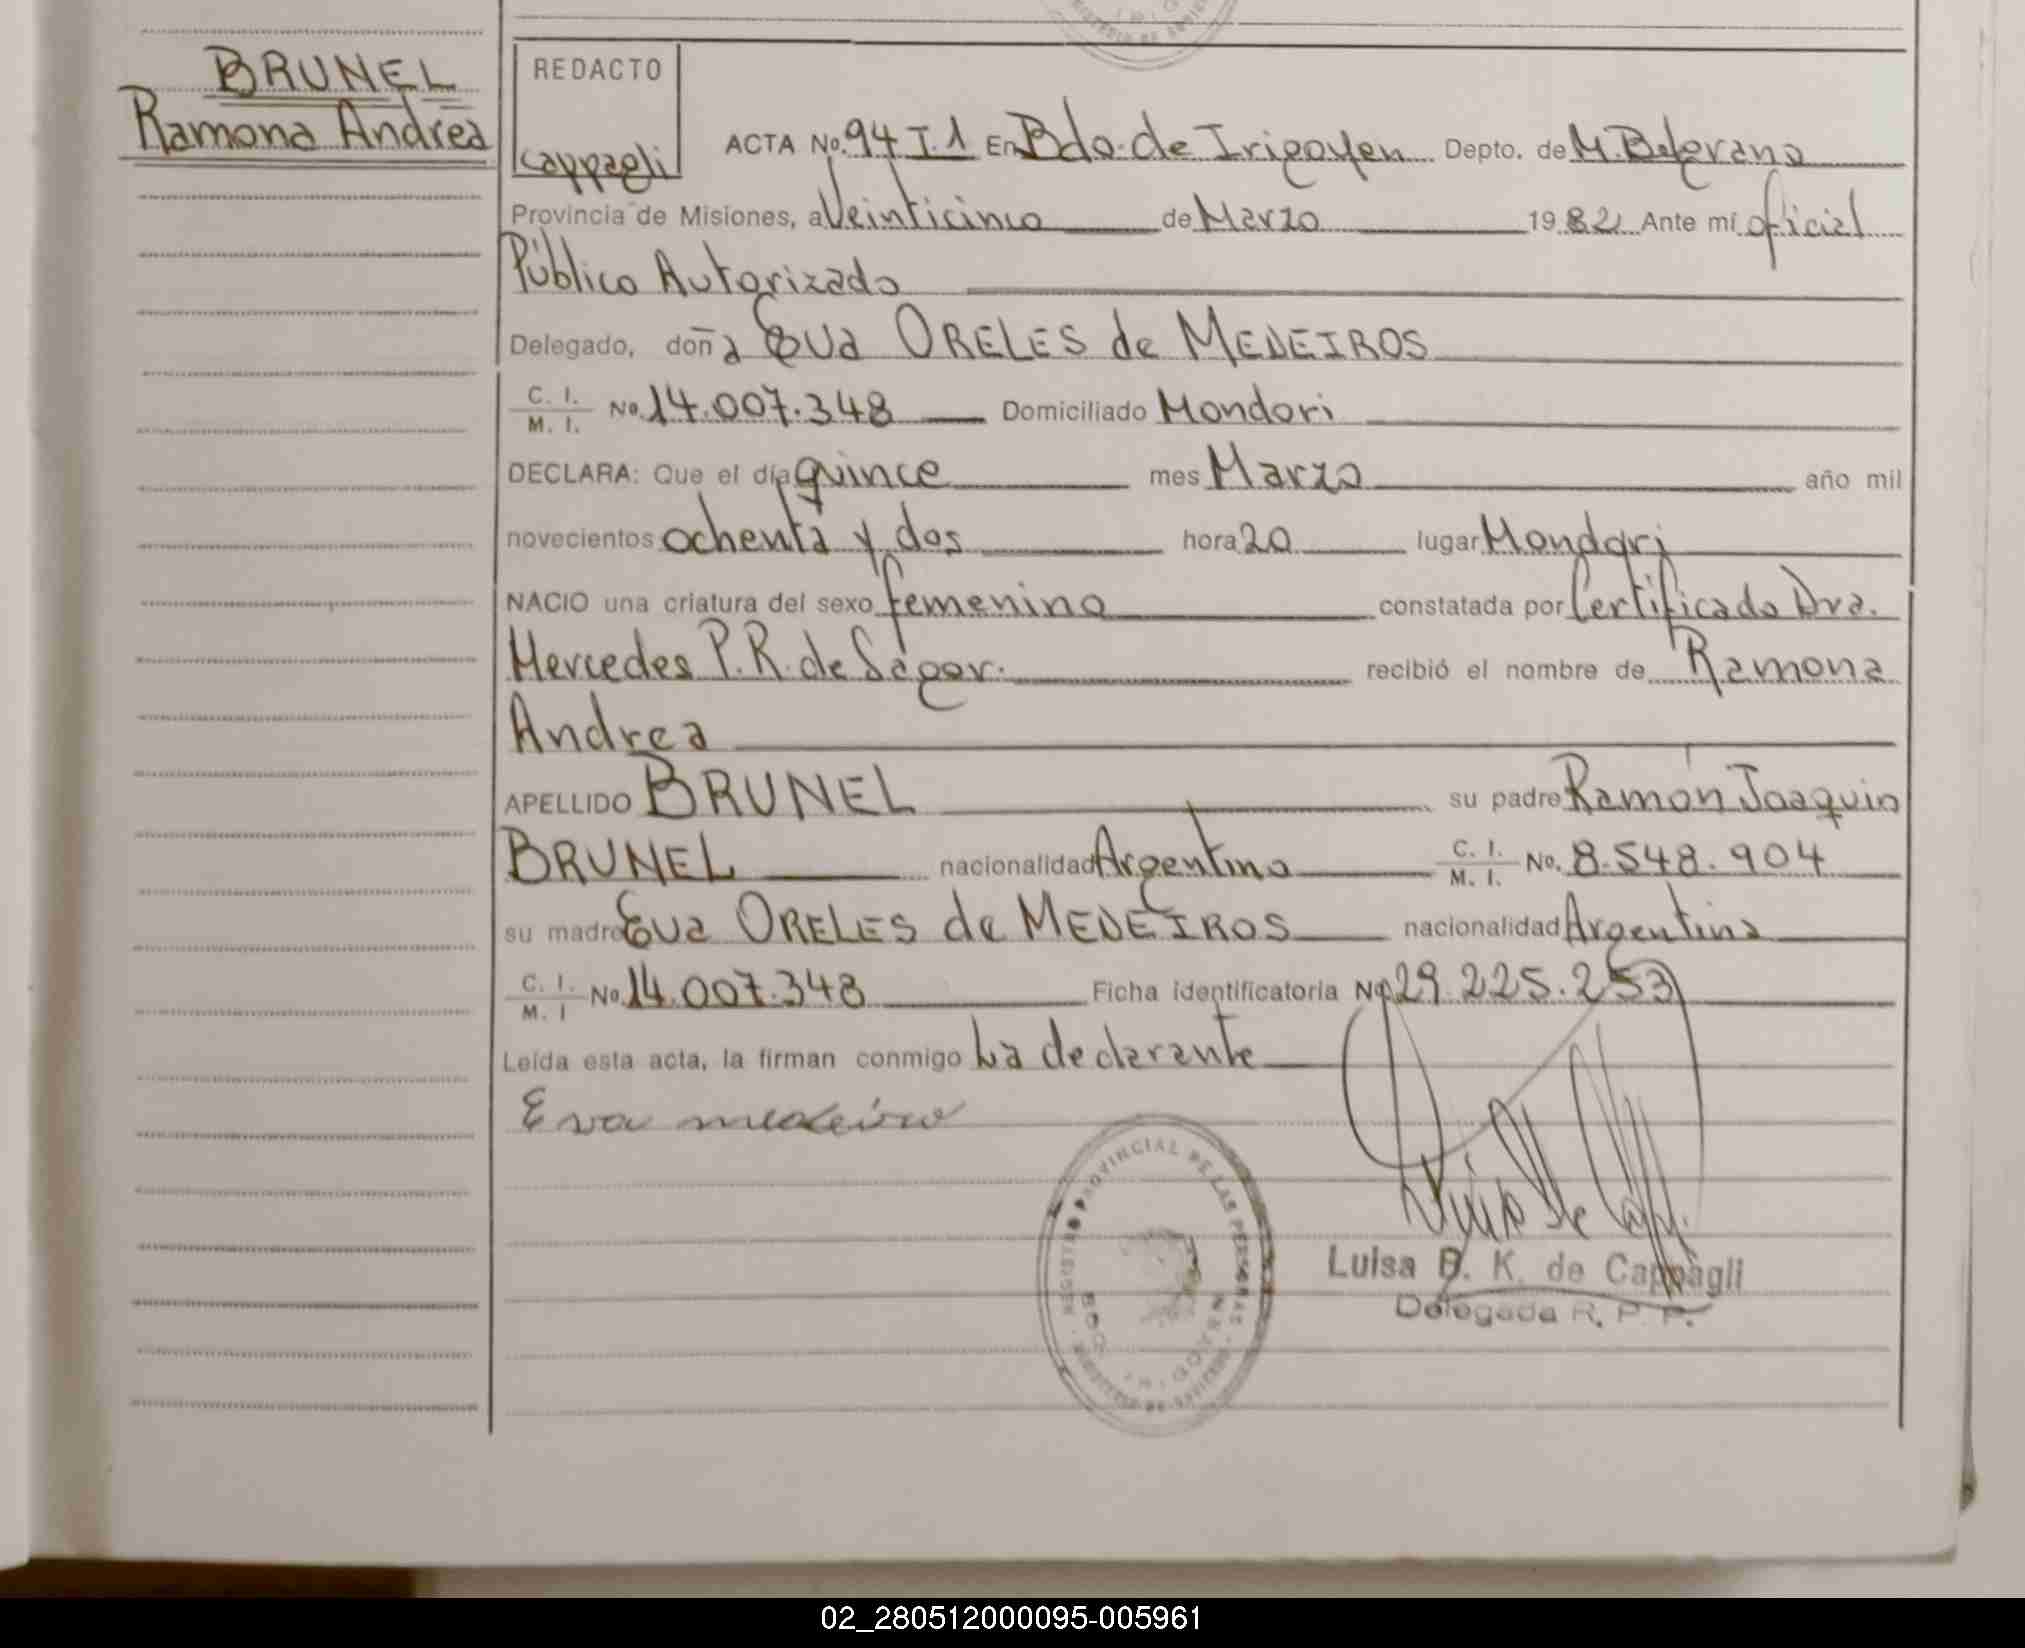 BRUNEL
Ramona Andrea
REDACTO
Cappagli
ACTA No. 94 T.1 En Bdo. de Irigoyen Depto. de M. Belgrano
Provincia de Misiones, a Veinticinco de Marzo 1982 Ante mí oficial
Público Autorizado
Delegado, doña Eva ORELES de MEDEIROS
C. I. / M. I. No. 14.007.348 Domiciliado Mondori
DECLARA: Que el día quince mes Marzo año mil
novecientos ochenta y dos hora 20 lugar Mondori
NACIO una criatura del sexo femenino constatada por Certificado Dra.
Mercedes P. R. de Sager. recibió el nombre de Ramona
Andrea
APELLIDO BRUNEL su padre Ramón Joaquin
BRUNEL nacionalidad Argentino C. I. / M. I. No. 8.548.904
su madre Eva ORELES de MEDEIROS nacionalidad Argentina
C. I. / M. I No. 14.007.348 Ficha identificatoria No. 29.225.253
Leída esta acta, la firman conmigo La declarante
Eva medeiro
REGISTRO PROVINCIAL DE LAS PERSONAS
Luisa B. K. de Cappagli
Delegada R. P. P.
02_280512000095-005961